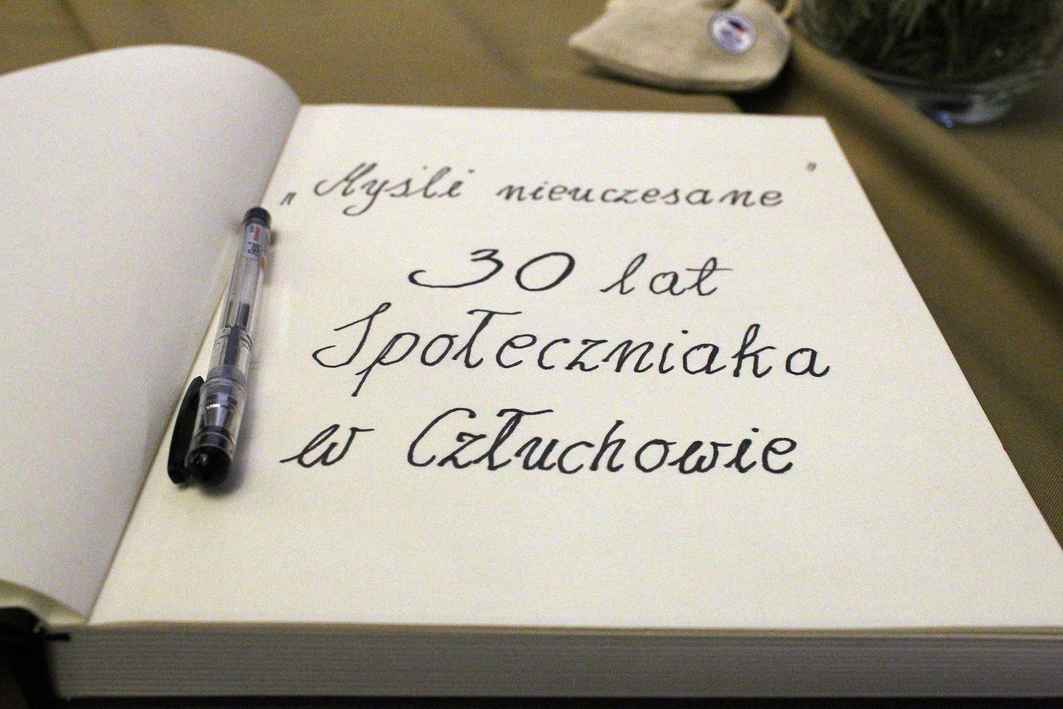 „Myśli nieuczesane”
30 lat
Społeczniaka
w Człuchowie